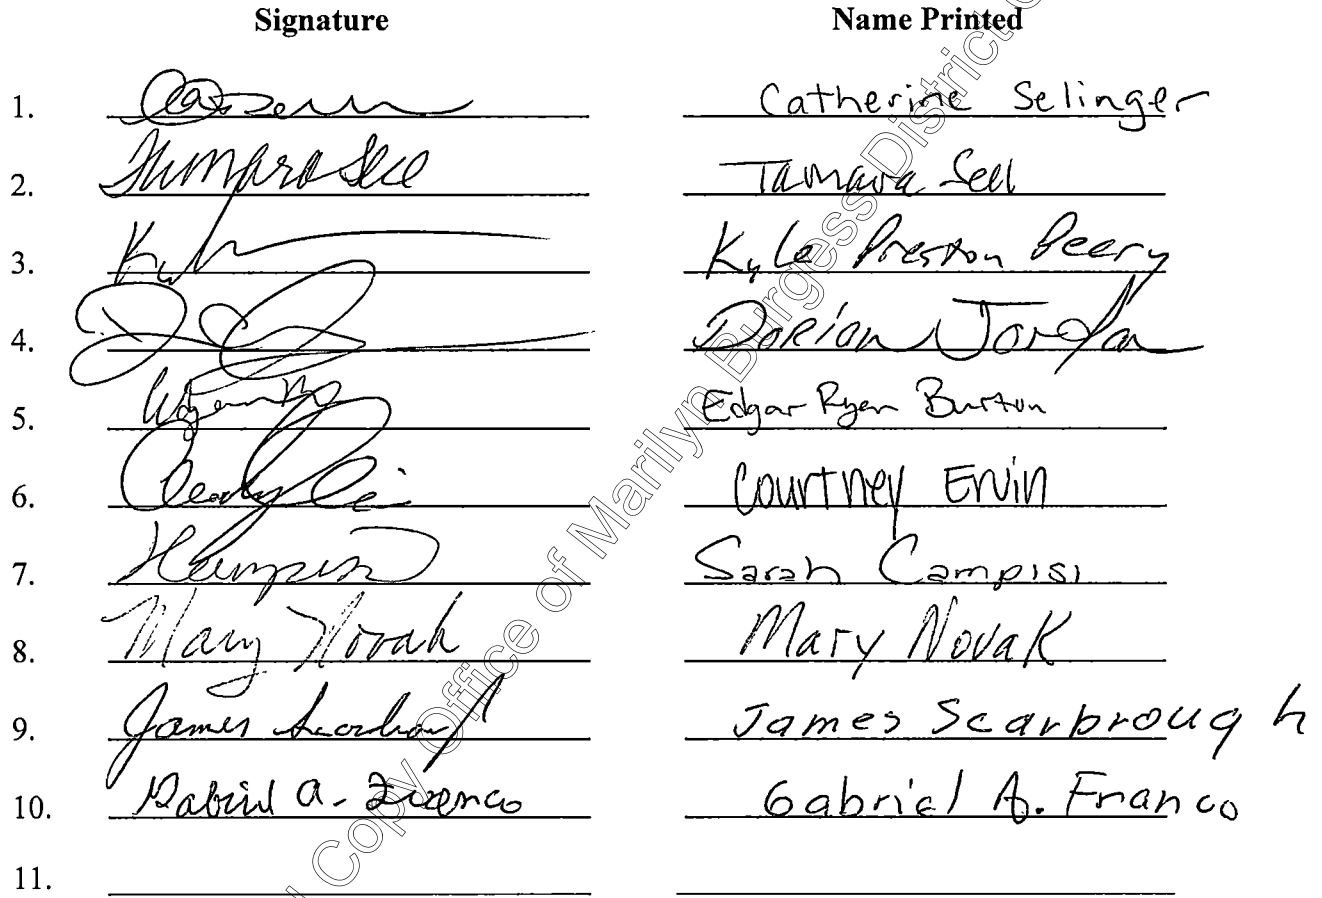 Signature Name Printed
1. Catherine Selinger
2. Tamara Sell
3. Kyle Preston Beery
4. Dorian Jordan
5. Edgar Ryan Burton
6. Courtney Ervin
7. Sarah Campisi
8. Mary Novak Mary Novak
9. James Scarbrough James Scarbrough
10. Gabriel A. Franco Gabriel A. Franco
11.
Copy Office of Marilyn Burgess District